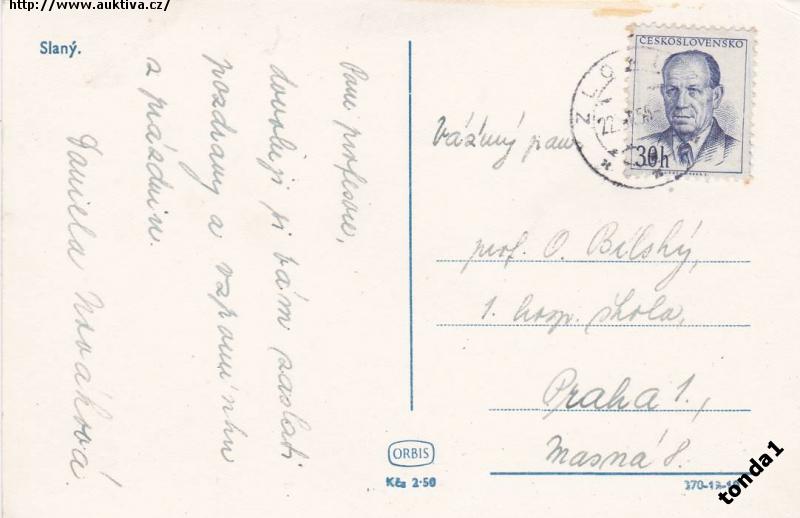 http://www.auktiva.cz/
Slaný.
Pane profesore,
dovoluji si vám zaslati
pozdravy a vzpomínku
z prázdnin.
Daniela Nováková.
ČESKOSLOVENSKO
30h
ZLO
22.
Vážený pan
prof. O. Bílský,
1. hosp. škola,
Praha 1.,
Masná 8.
ORBIS
Kčs 2·50
tonda1